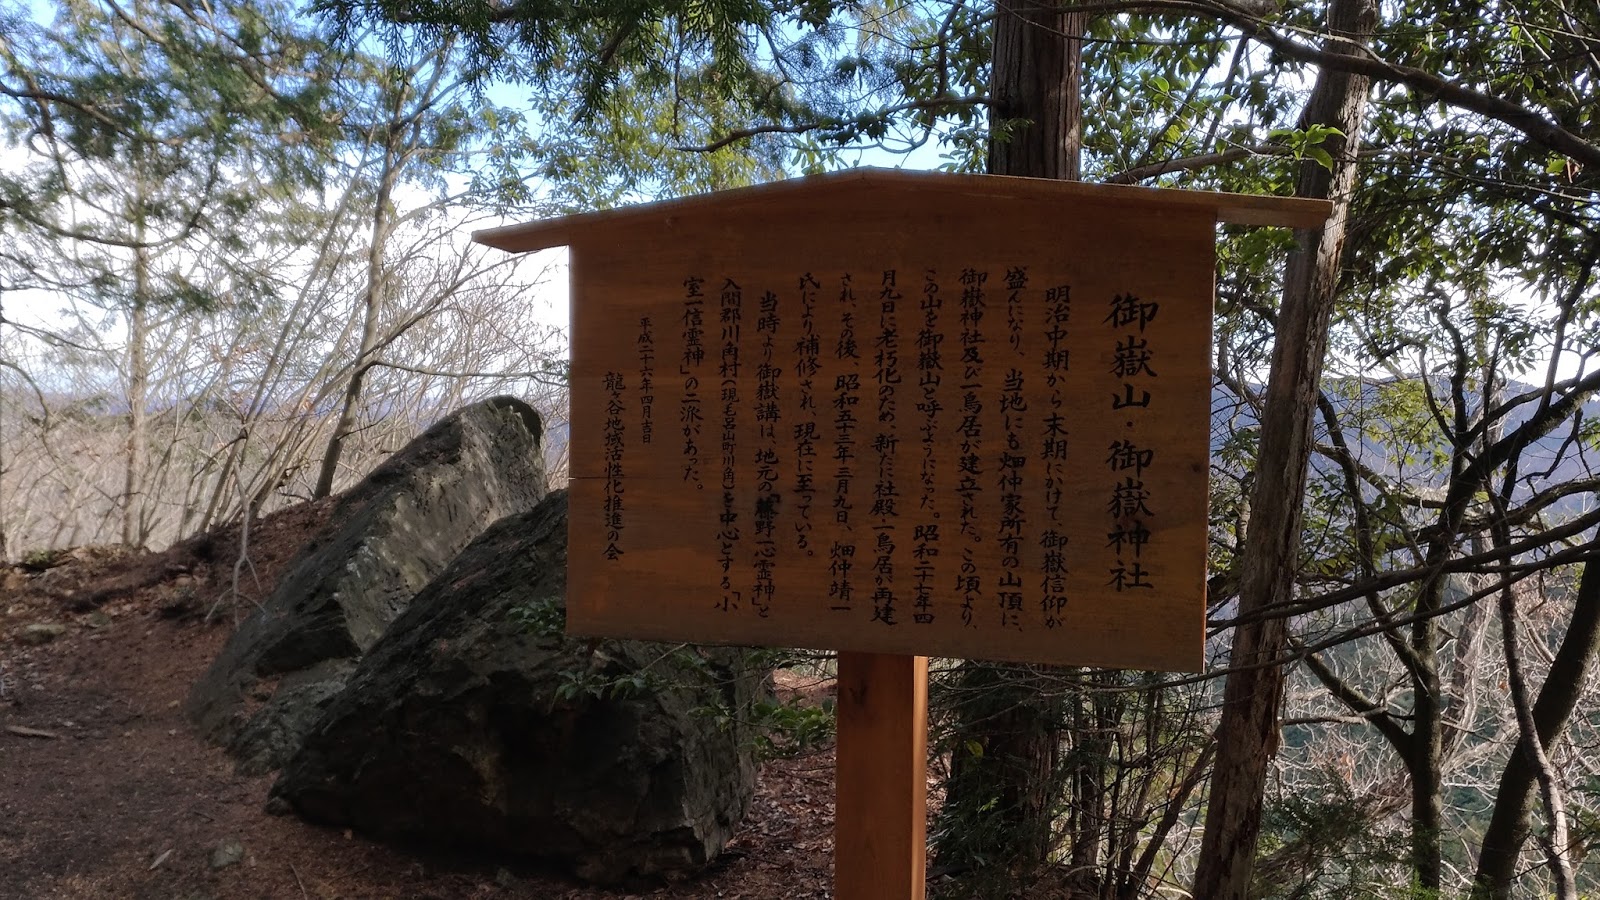 御嶽山・御嶽神社
明治中期から末期にかけて、御嶽信仰が
盛んになり、当地にも畑仲家所有の山頂に、
御嶽神社及び一鳥居が建立された。この頃より、
この山を御嶽山と呼ぶようになった。昭和二十七年四
月九日に老朽化のため、新たに社殿一鳥居が再建
され、その後、昭和五十三年三月九日、畑仲靖一
氏により補修され、現在に至っている。
当時より御嶽講は、地元の「藤野一心霊神」と
入間郡川角村(現毛呂山町川角)を中心とする、「小
室一信霊神」の二派があった。
平成二十六年四月吉日
龍ヶ谷地域活性化推進の会